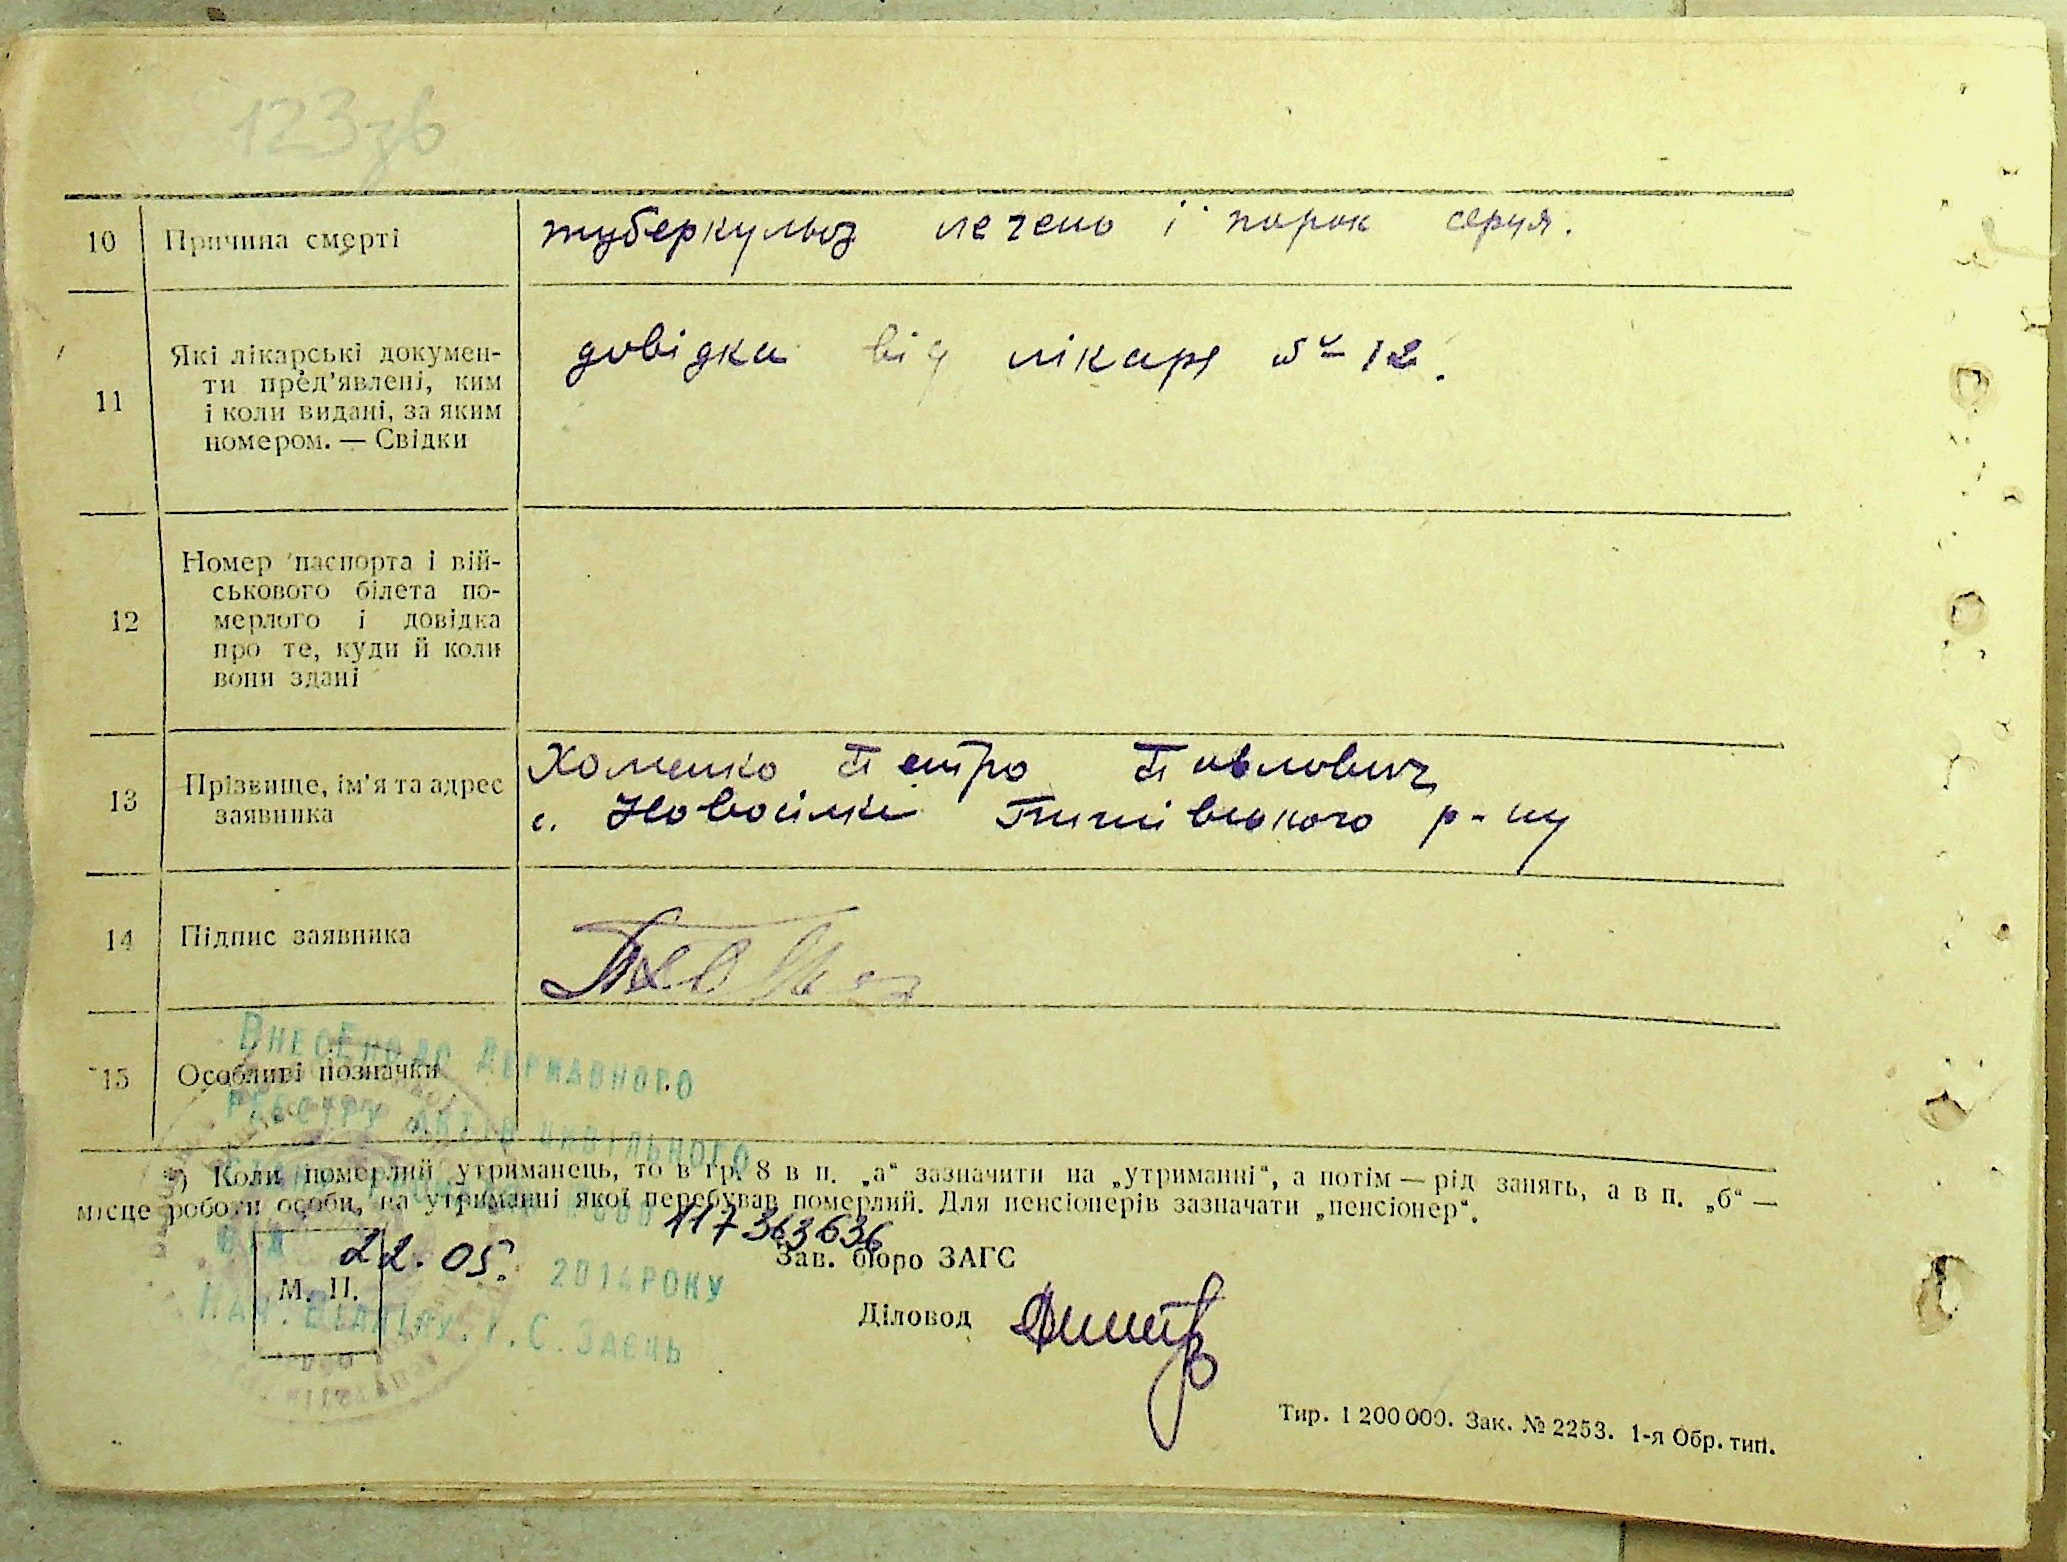 123зв
10 Причина смерті туберкульоз легень і порок серця.
11 Які лікарські докумен-
ти пред'явлені, ким
і коли видані, за яким
номером. — Свідки
довідка від лікаря № 12.
12 Номер паспорта і вій-
ськового білета по-
мерлого і довідка
про те, куди й коли
вони здані
13 Прізвище, ім'я та адрес
заявника
Хоменко Петро Павлович
с. Новосілки
р-ну
14 Підпис заявника
15 Особливі позначки
Внесено до Державного
реєстру актів цивільного
*) Коли померлий утриманець, то в гр. 8 в п. „а" зазначити на „утриманні", а потім — рід занять, а в п. „б" —
місце роботи особи, на утриманні якої перебував померлий. Для пенсіонерів зазначати „пенсіонер".
117363636
22.05. 2014 року
Зав. бюро ЗАГС
М. П.
Діловод
Нач. відділу С. Заєць
Тир. 1 200 000. Зак. № 2253. 1-я Обр. тип.